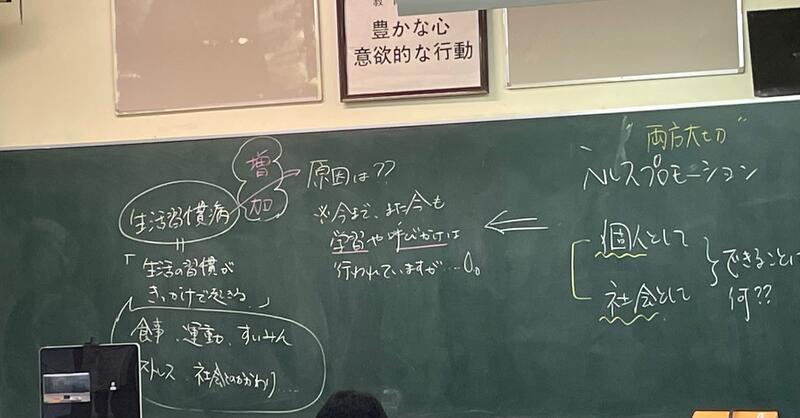 豊かな心
意欲的な行動
"両方大切"
ヘルスプロモーション
個人として
社会として
できることは
何??
増加
原因は??
※今まで、また今も
学習や呼びかけは
行われていますが…。
生活習慣病
=
「生活の習慣が
きっかけでおきる」
食事、運動、すいみん
ストレス、社会とのかかわり…